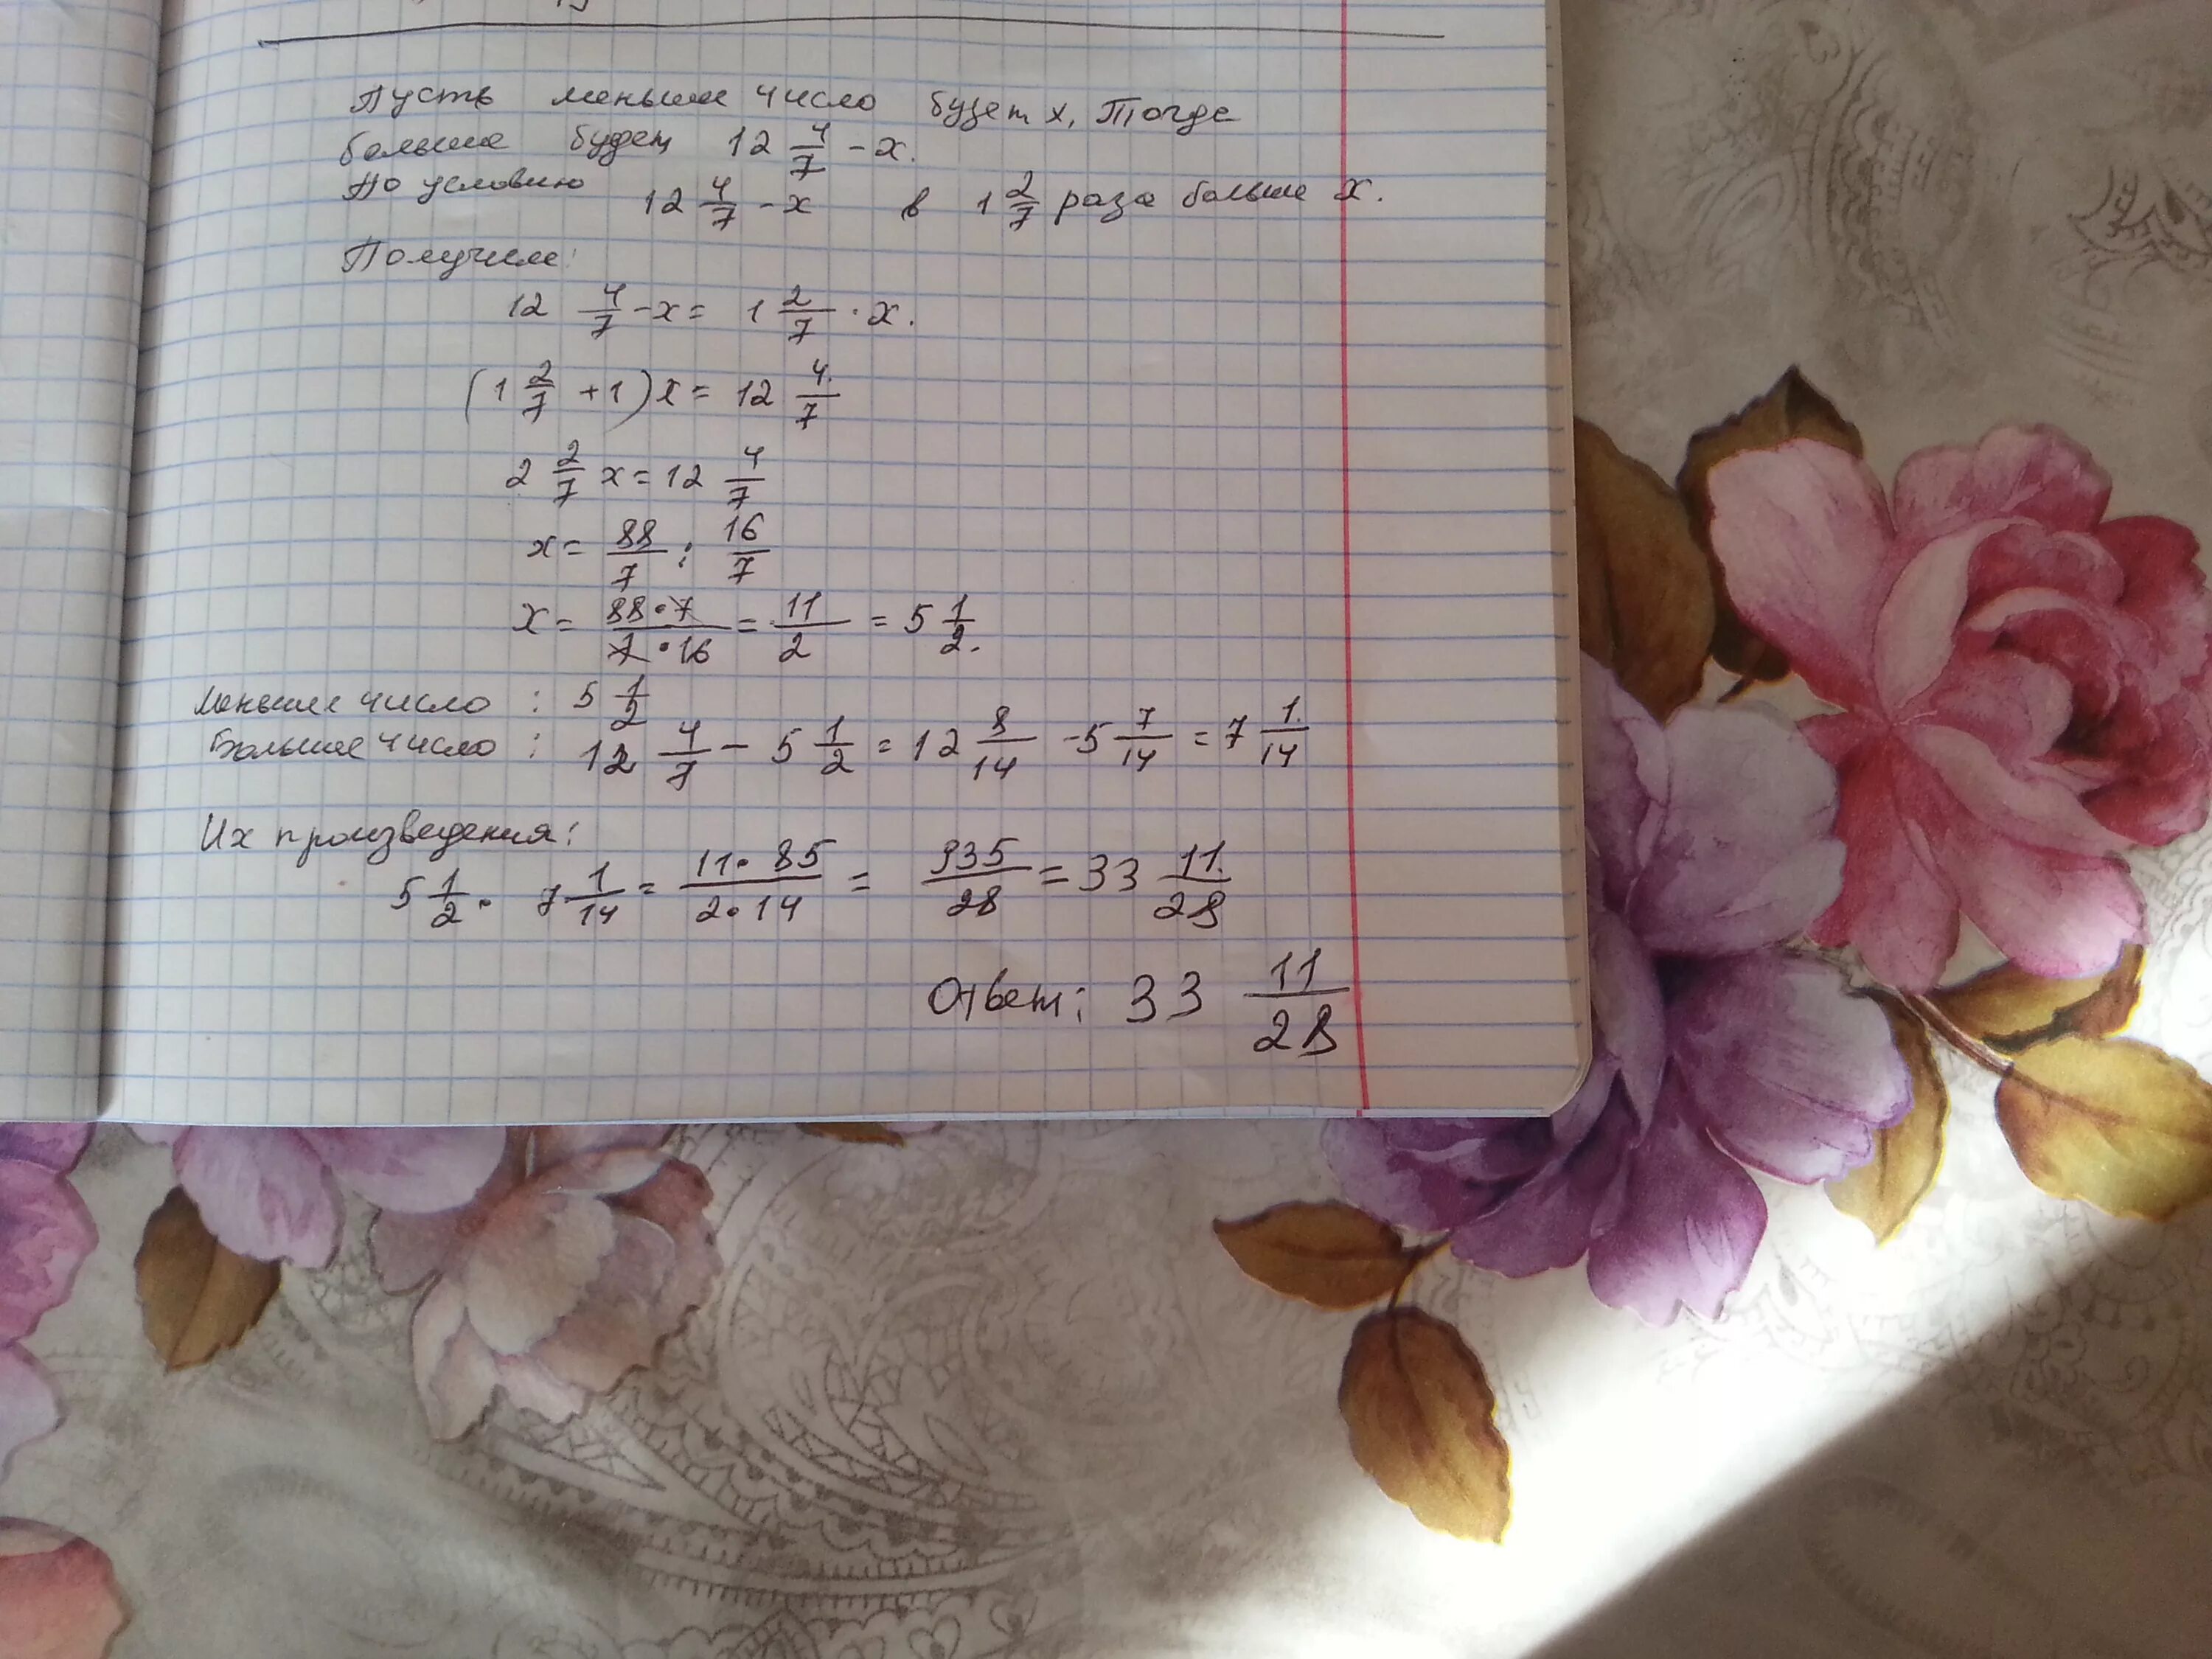 Пусть меньшее число будет x, Тогда
большее будет 12 4/7 - x.
По условию 12 4/7 - x в 1 2/7 раза больше x.
Получим:
12 4/7 - x = 1 2/7 · x.
(1 2/7 + 1) x = 12 4/7
2 2/7 x = 12 4/7
x = 88/7 : 16/7
x = 88·7/7·16 = 11/2 = 5 1/2.
Меньшее число : 5 1/2
Большее число : 12 4/7 - 5 1/2 = 12 8/14 - 5 7/14 = 7 1/14
Их произведения:
5 1/2 · 7 1/14 = 11·85/2·14 = 935/28 = 33 11/28
Ответ: 33 11/28